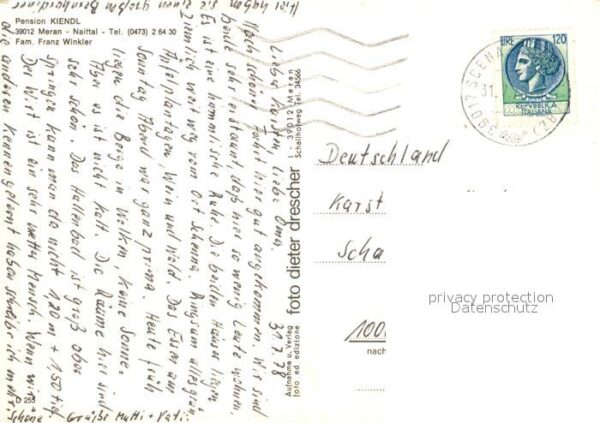 Pension KIENDL
39012 Meran - Naiftal - Tel. (0473) 2 64 30
Fam. Franz Winkler
31.7.78
Liebe liebe Oma.
Nach schöner Fahrt hier gut angekommen. Wir sind
heute sehr erstaunt, daß hier so wenig Leute wohnen.
Es ist eine himmlische Ruhe. Die beiden Häuser liegen
ziemlich weit weg vom Ort Schenna. Ringsum alles grün
Apfelplantagen Wein und Wald. Das Essen am
Sonntag Abend war ganz prima. Heute früh
liegen die Berge in Wolken, keine Sonne.
Aber es ist nicht kalt. Die Räume hier sind
sehr schön. Das Hallenbad ist groß aber
springen kann man da nicht 1,20 m + 1,50 tief.
Der Wirt ist ein sehr netter Mensch. Wenn wir
die anderen kennengelernt haben schreibe ich mehr.
Schöne Grüße Mutti + Vati.
Hier haben sie einen großen Bernhardiner
D 255
foto dieter drescher
I - 39012 Meran
Schallhofweg Tel. 34566
Aufnahme u. Verlag
foto ed edizione
LIRE 120
REPVBBLICA
ITALIANA
39017 SCENA
31.
(BZ)
Deutschland
Karst
Scha
1000
nach
privacy protection
Datenschutz